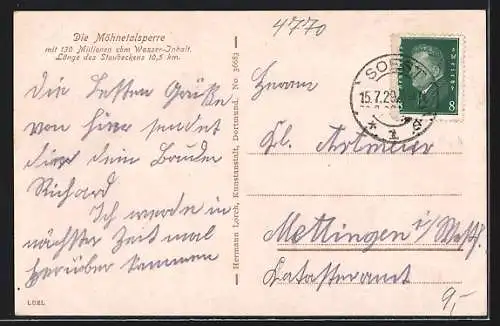 Die Möhnetalsperre
mit 130 Millionen cbm Wasser-Inhalt.
Länge des Staubeckens 10,5 km.
4770
Die besten Grüße
von hier sendet
dir dein Bruder
Richard
Ich werde in
nächster Zeit mal
herüber kommen
LUEL
Hermann Lorch, Kunstanstalt, Dortmund. No 36683
SOEST
15.7.29
8
Herrn
Mettingen i/Westf.
Katasteramt
9,-